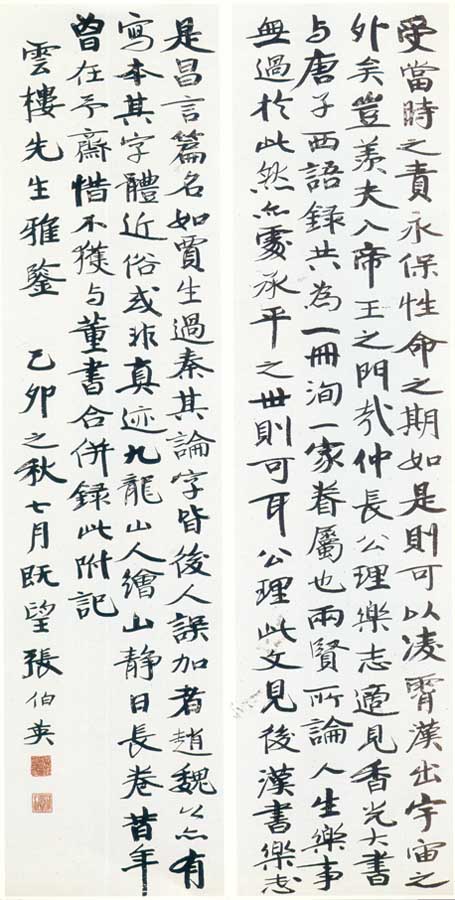 受當時之責永保性命之期如是則可以凌霄漢出宇宙之
外矣豈羨夫入帝王之門哉仲長公理樂志適見香光大書
与唐子西語錄共為一冊洵一家眷屬也兩賢所論人生樂事
無過於此然亦處承平之世則可耳公理此文見後漢書樂志
是昌言篇名如賈生過秦其論字皆後人誤加者趙魏公亦有
寫本其字體近俗或非真迹九龍山人繪山靜日長卷昔年
曾在予齋惜不獲与董書合併錄此附記
雲樓先生雅鑒 己卯之秋七月既望張伯英